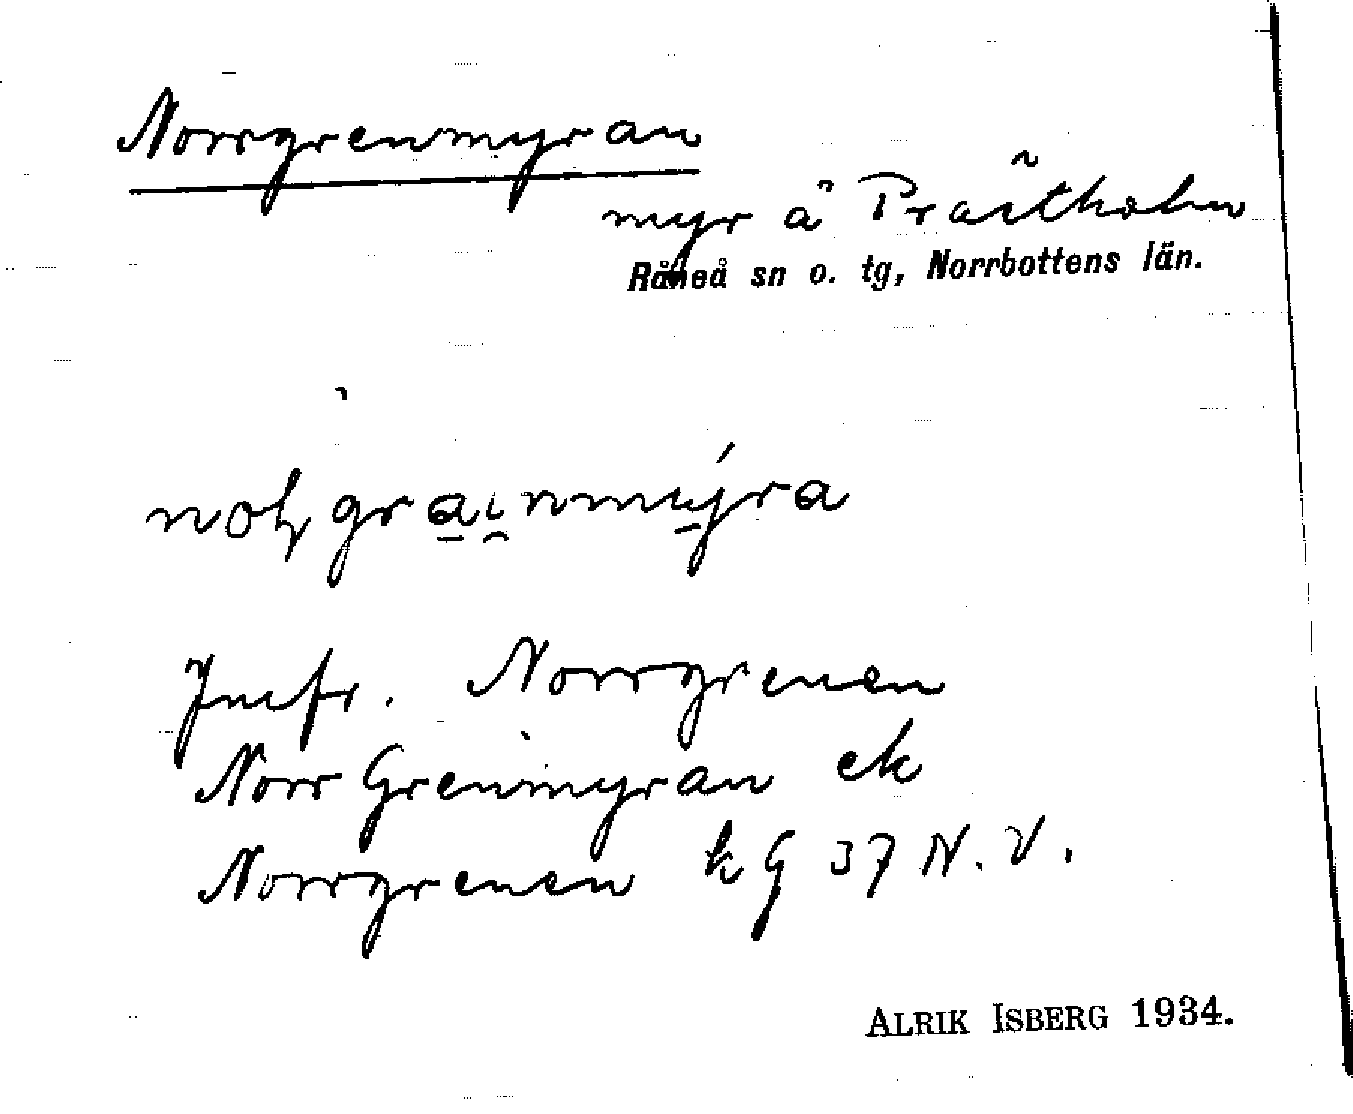 Norrgrenmyran
myr å Prästholm
Råneå sn o. tg, Norrbottens län.
Jmfr. Norrgrenen
Norr Grenmyran ek
Norrgrenen k G 37 N.V.
ALRIK ISBERG 1934.